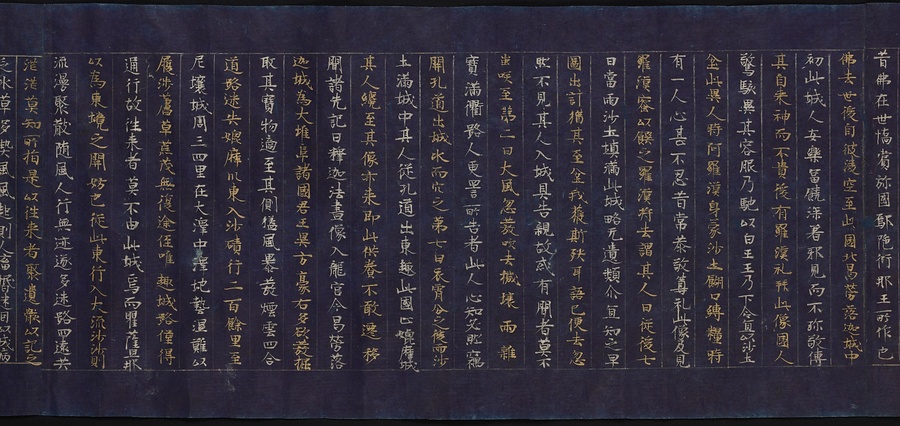 昔佛在世憍賞弥國鄔陁衍那王所作也
佛去世後自彼凌空至此國北曷勞落迦城中
初此城人安樂富饒深著邪見而不珎敬傳
其自来神而不貴後有羅漢礼拜此像國人
驚駭異其容服乃馳以白王王乃下令宜以沙土
坌此異人時阿羅漢身蒙沙土餬口絕糧時
有一人心甚不忍昔常恭敬尊礼此像及見
羅漢密以饌之羅漢將去謂其人曰從後七
日當雨沙土填滿此城略无遺類尒宜知之早
圖出計猶其坌我獲斯殃耳語已便去忽
然不見其人入城具告親故或有聞者莫不
嗤咲至第二日大風忽發吹去穢壤雨雜
寶滿衢路人更罵所告者此人心知必然竊
開孔道出城外而穴之第七日夜宵分之後雨沙
土滿城中其人從孔道出東趣此國止媲摩城
其人纔至其像亦来即此供養不敢遷移
聞諸先記曰釋迦法盡像入龍宮今曷勞落
迦城為大堆阜諸國君王異方豪右多欲發掘
取其寶物適至其側猛風暴發煙雲四合
道路迷失媲摩川東入沙磧行二百餘里至
尼壤城周三四里在大澤中澤地熱濕難以
履涉蘆草荒茂無復途徑唯趣城路僅得
通行故往来者莫不由此城焉而瞿薩旦那
以為東境之關防也從此東行入大流沙沙則
流漫聚散隨風人行無迹遂多迷路四遠茫
茫茫莫知所指是以往来者聚遺骸以記之
乏水草多熱風風起則人畜惛迷因以成病